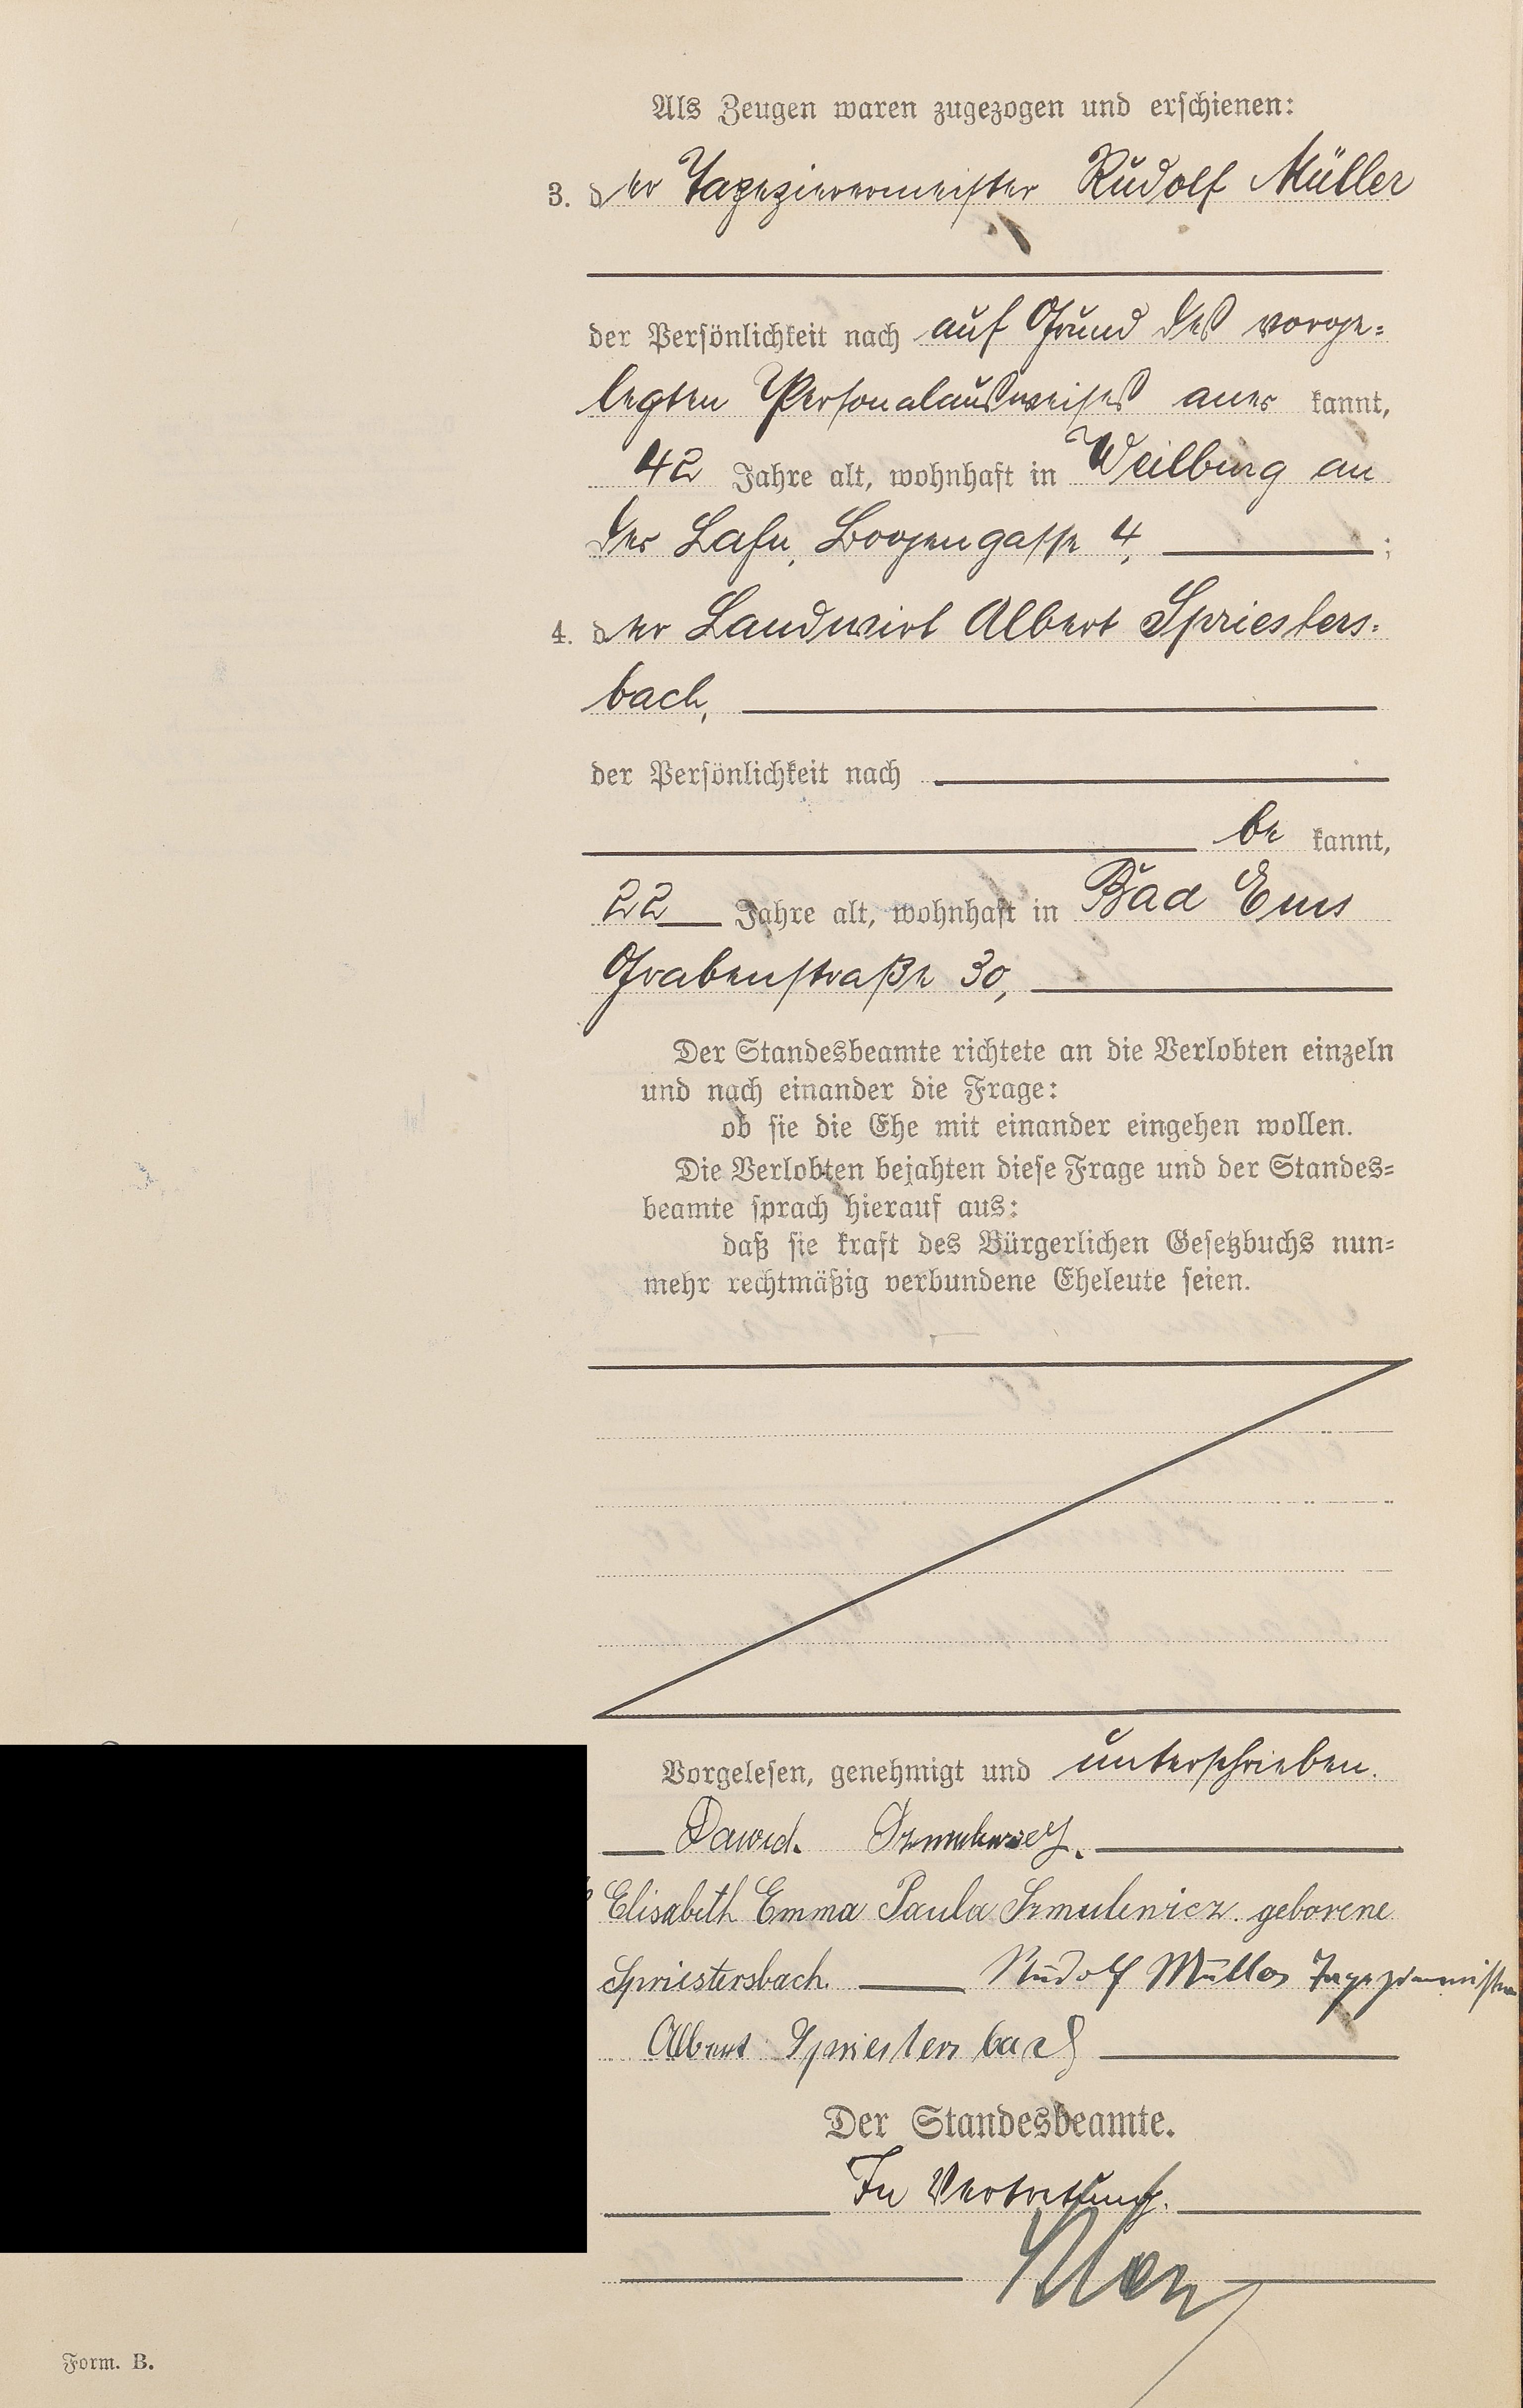 Als Zeugen waren zugezogen und erschienen:
3. der Tapezierermeister Rudolf Müller
der Persönlichkeit nach auf Grund des vorge=
legten Personalausweises aner kannt,
42 Jahre alt, wohnhaft in Weilburg an
der Lahn, Bogengasse 4, ;
4. der Landwirt Albert Spriesters=
bach,
der Persönlichkeit nach
be kannt,
22 Jahre alt, wohnhaft in Bad Ems
Grabenstraße 30,
Der Standesbeamte richtete an die Verlobten einzeln
und nach einander die Frage:
ob sie die Ehe mit einander eingehen wollen.
Die Verlobten bejahten diese Frage und der Standes=
beamte sprach hierauf aus:
daß sie kraft des Bürgerlichen Gesetzbuchs nun=
mehr rechtmäßig verbundene Eheleute seien.
Vorgelesen, genehmigt und unterschrieben.
Dawid
Elisabeth Emma Paula Szmulewicz geborene
Spriestersbach. Rudolf Müller Tapezierermeister
Albert Spriestersbach
Der Standesbeamte.
In Vertretung.
Form. B.